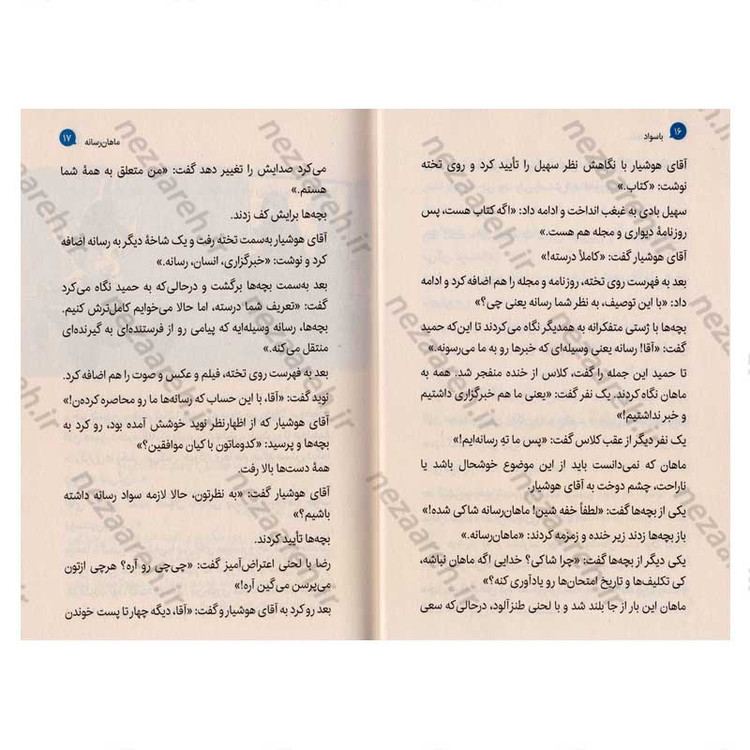 ۱۶ باسواد
آقای هوشیار با نگاهش نظر سهیل را تأیید کرد و روی تخته
نوشت: «کتاب.»
سهیل بادی به غبغب انداخت و ادامه داد: «اگه کتاب هست، پس
روزنامهٔ دیواری و مجله هم هست.»
آقای هوشیار گفت: «کاملاً درسته!»
بعد به فهرست روی تخته، روزنامه و مجله را هم اضافه کرد و ادامه
داد: «با این توصیف، به نظر شما رسانه یعنی چی؟»
بچه‌ها با ژستی متفکرانه به همدیگر نگاه می‌کردند تا این‌که حمید
گفت: «آقا! رسانه یعنی وسیله‌ای که خبرها رو به ما می‌رسونه.»
تا حمید این جمله را گفت، کلاس از خنده منفجر شد. همه به
ماهان نگاه کردند. یک نفر گفت: «یعنی ما هم خبرگزاری داشتیم
و خبر نداشتیم!»
یک نفر دیگر از عقب کلاس گفت: «پس ما تهِ رسانه‌ایم!»
ماهان که نمی‌دانست باید از این موضوع خوشحال باشد یا
ناراحت، چشم دوخت به آقای هوشیار.
یکی از بچه‌ها گفت: «لطفاً خفه شین! ماهان‌رسانه شاکی شده!»
باز بچه‌ها زدند زیر خنده و زمزمه کردند: «ماهان‌رسانه.»
یکی دیگر از بچه‌ها گفت: «چرا شاکی؟ خدایی اگه ماهان نباشه،
کی تکلیف‌ها و تاریخ امتحان‌ها رو یادآوری کنه؟»
ماهان این بار از جا بلند شد و با لحنی طنزآلود، درحالی‌که سعی
ماهان‌رسانه ۱۷
می‌کرد صدایش را تغییر دهد گفت: «من متعلق به همهٔ شما
هستم.»
بچه‌ها برایش کف زدند.
آقای هوشیار به‌سمت تخته رفت و یک شاخهٔ دیگر به رسانه اضافه
کرد و نوشت: «خبرگزاری، انسان، رسانه.»
بعد به‌سمت بچه‌ها برگشت و درحالی‌که به حمید نگاه می‌کرد
گفت: «تعریف شما درسته، اما حالا می‌خوایم کامل‌ترش کنیم.
بچه‌ها، رسانه وسیله‌ایه که پیامی رو از فرستنده‌ای به گیرنده‌ای
منتقل می‌کنه.»
بعد به فهرست روی تخته، فیلم و عکس و صوت را هم اضافه کرد.
نوید گفت: «آقا، با این حساب که رسانه‌ها ما رو محاصره کرده‌ن!»
آقای هوشیار که از اظهارنظر نوید خوشش آمده بود، رو کرد به
بچه‌ها و پرسید: «کدوماتون با کیان موافقین؟»
همهٔ دست‌ها بالا رفت.
آقای هوشیار گفت: «به نظرتون، حالا لازمه سواد رسانه داشته
باشیم؟»
بچه‌ها تأیید کردند.
رضا با لحنی اعتراض‌آمیز گفت: «چی‌چی رو آره؟ هرچی ازتون
می‌پرسن می‌گین آره!»
بعد رو کرد به آقای هوشیار و گفت: «آقا، دیگه چهار تا پست خوندن
nezaareh.ir